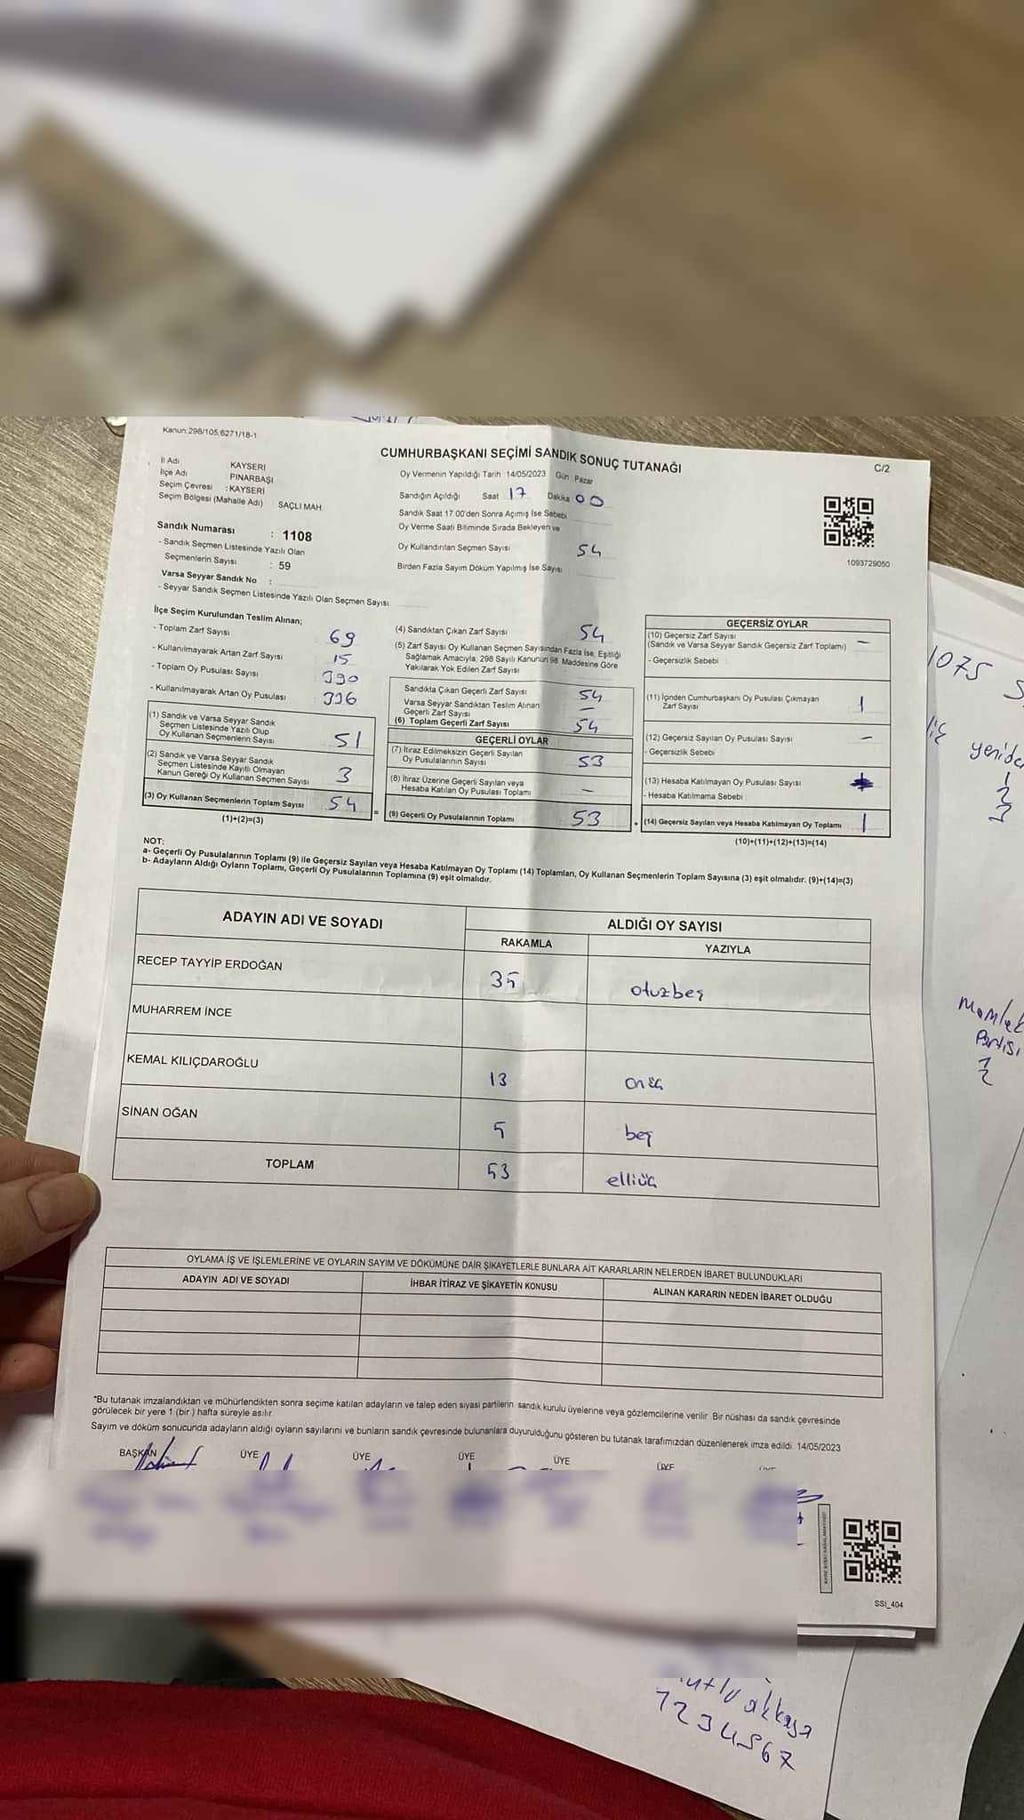 Kanun:298/105,6271/18-1
CUMHURBAŞKANI SEÇİMİ SANDIK SONUÇ TUTANAĞI
C/2
İl Adı KAYSERİ
İlçe Adı PINARBAŞI
Seçim Çevresi : KAYSERİ
Seçim Bölgesi (Mahalle Adı) SAÇLI MAH.
Sandık Numarası : 1108
- Sandık Seçmen Listesinde Yazılı Olan
Seçmenlerin Sayısı : 59
Varsa Seyyar Sandık No :
- Seyyar Sandık Seçmen Listesinde Yazılı Olan Seçmen Sayısı
Oy Vermenin Yapıldığı Tarih 14/05/2023 Gün Pazar
Sandığın Açıldığı Saat 17 Dakika 00
Sandık Saat 17.00'den Sonra Açımış İse Sebebi
Oy Verme Saati Bitiminde Sırada Bekleyen ve
Oy Kullandırılan Seçmen Sayısı 54
Birden Fazla Sayım Döküm Yapılmış İse Sayısı
1093729050
İlçe Seçim Kurulundan Teslim Alınan;
- Toplam Zarf Sayısı 69
- Kullanılmayarak Artan Zarf Sayısı 15
- Toplam Oy Pusulası Sayısı 390
- Kullanılmayarak Artan Oy Pusulası 336
(1) Sandık ve Varsa Seyyar Sandık
Seçmen Listesinde Yazılı Olup
Oy Kullanan Seçmenlerin Sayısı 51
(2) Sandık ve Varsa Seyyar Sandık
Seçmen Listesinde Kayıtlı Olmayan
Kanun Gereği Oy Kullanan Seçmen Sayısı 3
(3) Oy Kullanan Seçmenlerin Toplam Sayısı 54
(1)+(2)=(3)
(4) Sandıktan Çıkan Zarf Sayısı 54
(5) Zarf Sayısı Oy Kullanan Seçmen Sayısından Fazla İse, Eşitliği
Sağlamak Amacıyla; 298 Sayılı Kanunun 98. Maddesine Göre
Yakılarak Yok Edilen Zarf Sayısı
Sandıkta Çıkan Geçerli Zarf Sayısı 54
Varsa Seyyar Sandıktan Teslim Alınan
Geçerli Zarf Sayısı –
(6) Toplam Geçerli Zarf Sayısı 54
GEÇERLİ OYLAR
(7) İtiraz Edilmeksizin Geçerli Sayılan
Oy Pusulalarının Sayısı 53
(8) İtiraz Üzerine Geçerli Sayılan veya
Hesaba Katılan Oy Pusulası Toplamı –
(9) Geçerli Oy Pusulalarının Toplamı 53
GEÇERSİZ OYLAR
(10) Geçersiz Zarf Sayısı –
(Sandık ve Varsa Seyyar Sandık Geçersiz Zarf Toplamı)
- Geçersizlik Sebebi
(11) İçinden Cumhurbaşkanı Oy Pusulası Çıkmayan
Zarf Sayısı 1
(12) Geçersiz Sayılan Oy Pusulası Sayısı –
- Geçersizlik Sebebi
(13) Hesaba Katılmayan Oy Pusulası Sayısı
- Hesaba Katılmama Sebebi
(14) Geçersiz Sayılan veya Hesaba Katılmayan Oy Toplamı 1
(10)+(11)+(12)+(13)=(14)
NOT:
a- Geçerli Oy Pusulalarının Toplamı (9) ile Geçersiz Sayılan veya Hesaba Katılmayan Oy Toplamı (14) Toplamları, Oy Kullanan Seçmenlerin Toplam Sayısına (3) eşit olmalıdır. (9)+(14)=(3)
b- Adayların Aldığı Oyların Toplamı, Geçerli Oy Pusulalarının Toplamına (9) eşit olmalıdır.
ADAYIN ADI VE SOYADI ALDIĞI OY SAYISI
RAKAMLA YAZIYLA
RECEP TAYYİP ERDOĞAN 35 otuzbeş
MUHARREM İNCE
KEMAL KILIÇDAROĞLU 13 onüç
SİNAN OĞAN 5 beş
TOPLAM 53 elliüç
OYLAMA İŞ VE İŞLEMLERİNE VE OYLARIN SAYIM VE DÖKÜMÜNE DAİR ŞİKAYETLERLE BUNLARA AİT KARARLARIN NELERDEN İBARET BULUNDUKLARI
ADAYIN ADI VE SOYADI İHBAR İTİRAZ VE ŞİKAYETİN KONUSU ALINAN KARARIN NEDEN İBARET OLDUĞU
*Bu tutanak imzalandıktan ve mühürlendikten sonra seçime katılan adayların ve talep eden siyasi partilerin sandık kurulu üyelerine veya gözlemcilerine verilir. Bir nüshası da sandık çevresinde
görülecek bir yere 1 (bir) hafta süreyle asılır.
Sayım ve döküm sonucunda adayların aldığı oyların sayılarını ve bunların sandık çevresinde bulunanlara duyurulduğunu gösteren bu tutanak tarafımızdan düzenlenerek imza edildi. 14/05/2023
BAŞKAN ÜYE ÜYE ÜYE ÜYE ÜYE
SSI_404
1075
yeniden
1
2
3
Partisi
1
2
1234567